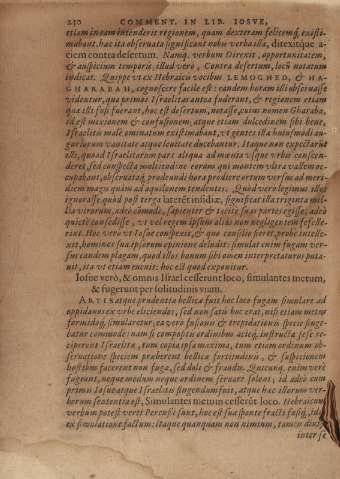 230 COMMENT. IN LIB. IOSVE,
etiam in eam intenderit regionem, quam dexteram felicemq́; existi-
mabant, hac ita obseruata significant nobis verba illa, direxitque a-
ciem contra desertum. Namq́; verbum Direxit, opportunitatem,
& auspicium temporis, illud verò, Contra desertum, locũ notatum
indicat. Quippe vt ex Hebraicis vocibus LEMOGHED, & HA-
GHARABAH, cognoscere facile est: eandem horam illi obseruasse
videntur, qua primos Israelitas antea fuderant, & regionem etiam
quæ illi fuerant, hoc est desertum, nomen Gharaba,
id est mixtionem & confusionem, atque etiam dulcedinem sibi bene,
Israelitis male ominatum existimabant, vt gentes illæ huiusmodi au-
guriorum vanitate atque leuitate ducebantur. Itaque non expectarũt
illi, quoad Israelitarum pars aliqua ad muros vsque vrbis conscen-
deret, sed conspecta multitudine eorum qui montem vltra vallem oc-
cupabant, obseruatáq; prodeundi hora prodiere ertum versus ad meri-
diem magis quàm ad aquilonem tendentes. Quòd verò legimus illos
ignorasse quòd post terga laterẽt insidiæ, significat illa triginta mil-
lia virorum, adeò cõmodè, sapienter & tacitè suas partes egisse, adeò
quietè consedisse, vt vel regem ipsum aliàs non negligentem fefelle-
rint. Hoc verò vt Iosue conspexit, & quo consilio fieret, probè intelle-
xit, homines sua ipsorum opinione delusit: simulat enim fugam ver-
sus eandem plagam, quod illos bonum sibi omen interpretaturos puta-
uit, ita vt etiam euenit: hoc est quod exponitur.
Iosue verò, & omnis Israel cesserunt loco, simulantes metum,
& fugerunt per solitudinis viam.
ARTIS atque prudentiæ bellicæ fuit hoc loco fugam simulare ad
oppidanos ex vrbe eliciendos, sed non satis hoc erat, nisi etiam metu
formidoq́; simularetur, ea verò fusionis & trepidationis specie finge-
batur commodè: nam si compositis ordinibus acieq́; instructa sese re-
ciperent Israelitæ, tum copia ipsa maxima, tum etiam ordinum ob-
seruationes speciem præberent bellicæ fortitudinis, & suspicionem
hostibus facerent non fugæ, sed doli & fraudis. Quicunq; enim verè
fugerunt, neque modum neque ordinem seruare solent; id adeò cùm
primis Iosueatque Israelitis fingendum fuit, atque hæc illorum ver-
borum sententia est, Simulantes metum cesserũt loco. Hebraicum
verbum potest verti Percussi sunt, hoc est sua sponte fracti fusiq́;
ex simulatione factum: itaque quanquam non nimium, tamen
inter se